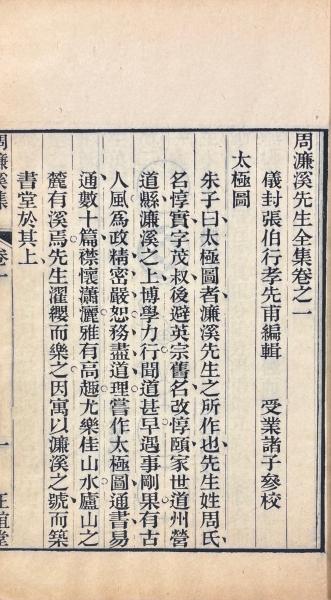 周濂溪先生全集卷之一
儀封張伯行孝先甫編輯 受業諸子參校
太極圖
朱子曰太極圖者濂溪先生之所作也先生姓周氏
名惇實字茂叔後避英宗舊名改惇頤家世道州營
道縣濂溪之上博學力行聞道甚早遇事剛果有古
人風為政精密嚴恕務盡道理嘗作太極圖通書易
通數十篇襟懷瀟灑雅有高趣尤樂佳山水廬山之
麓有溪焉先生濯纓而樂之因寓以濂溪之號而築
書堂於其上
周濂溪集 卷一 一 正誼堂